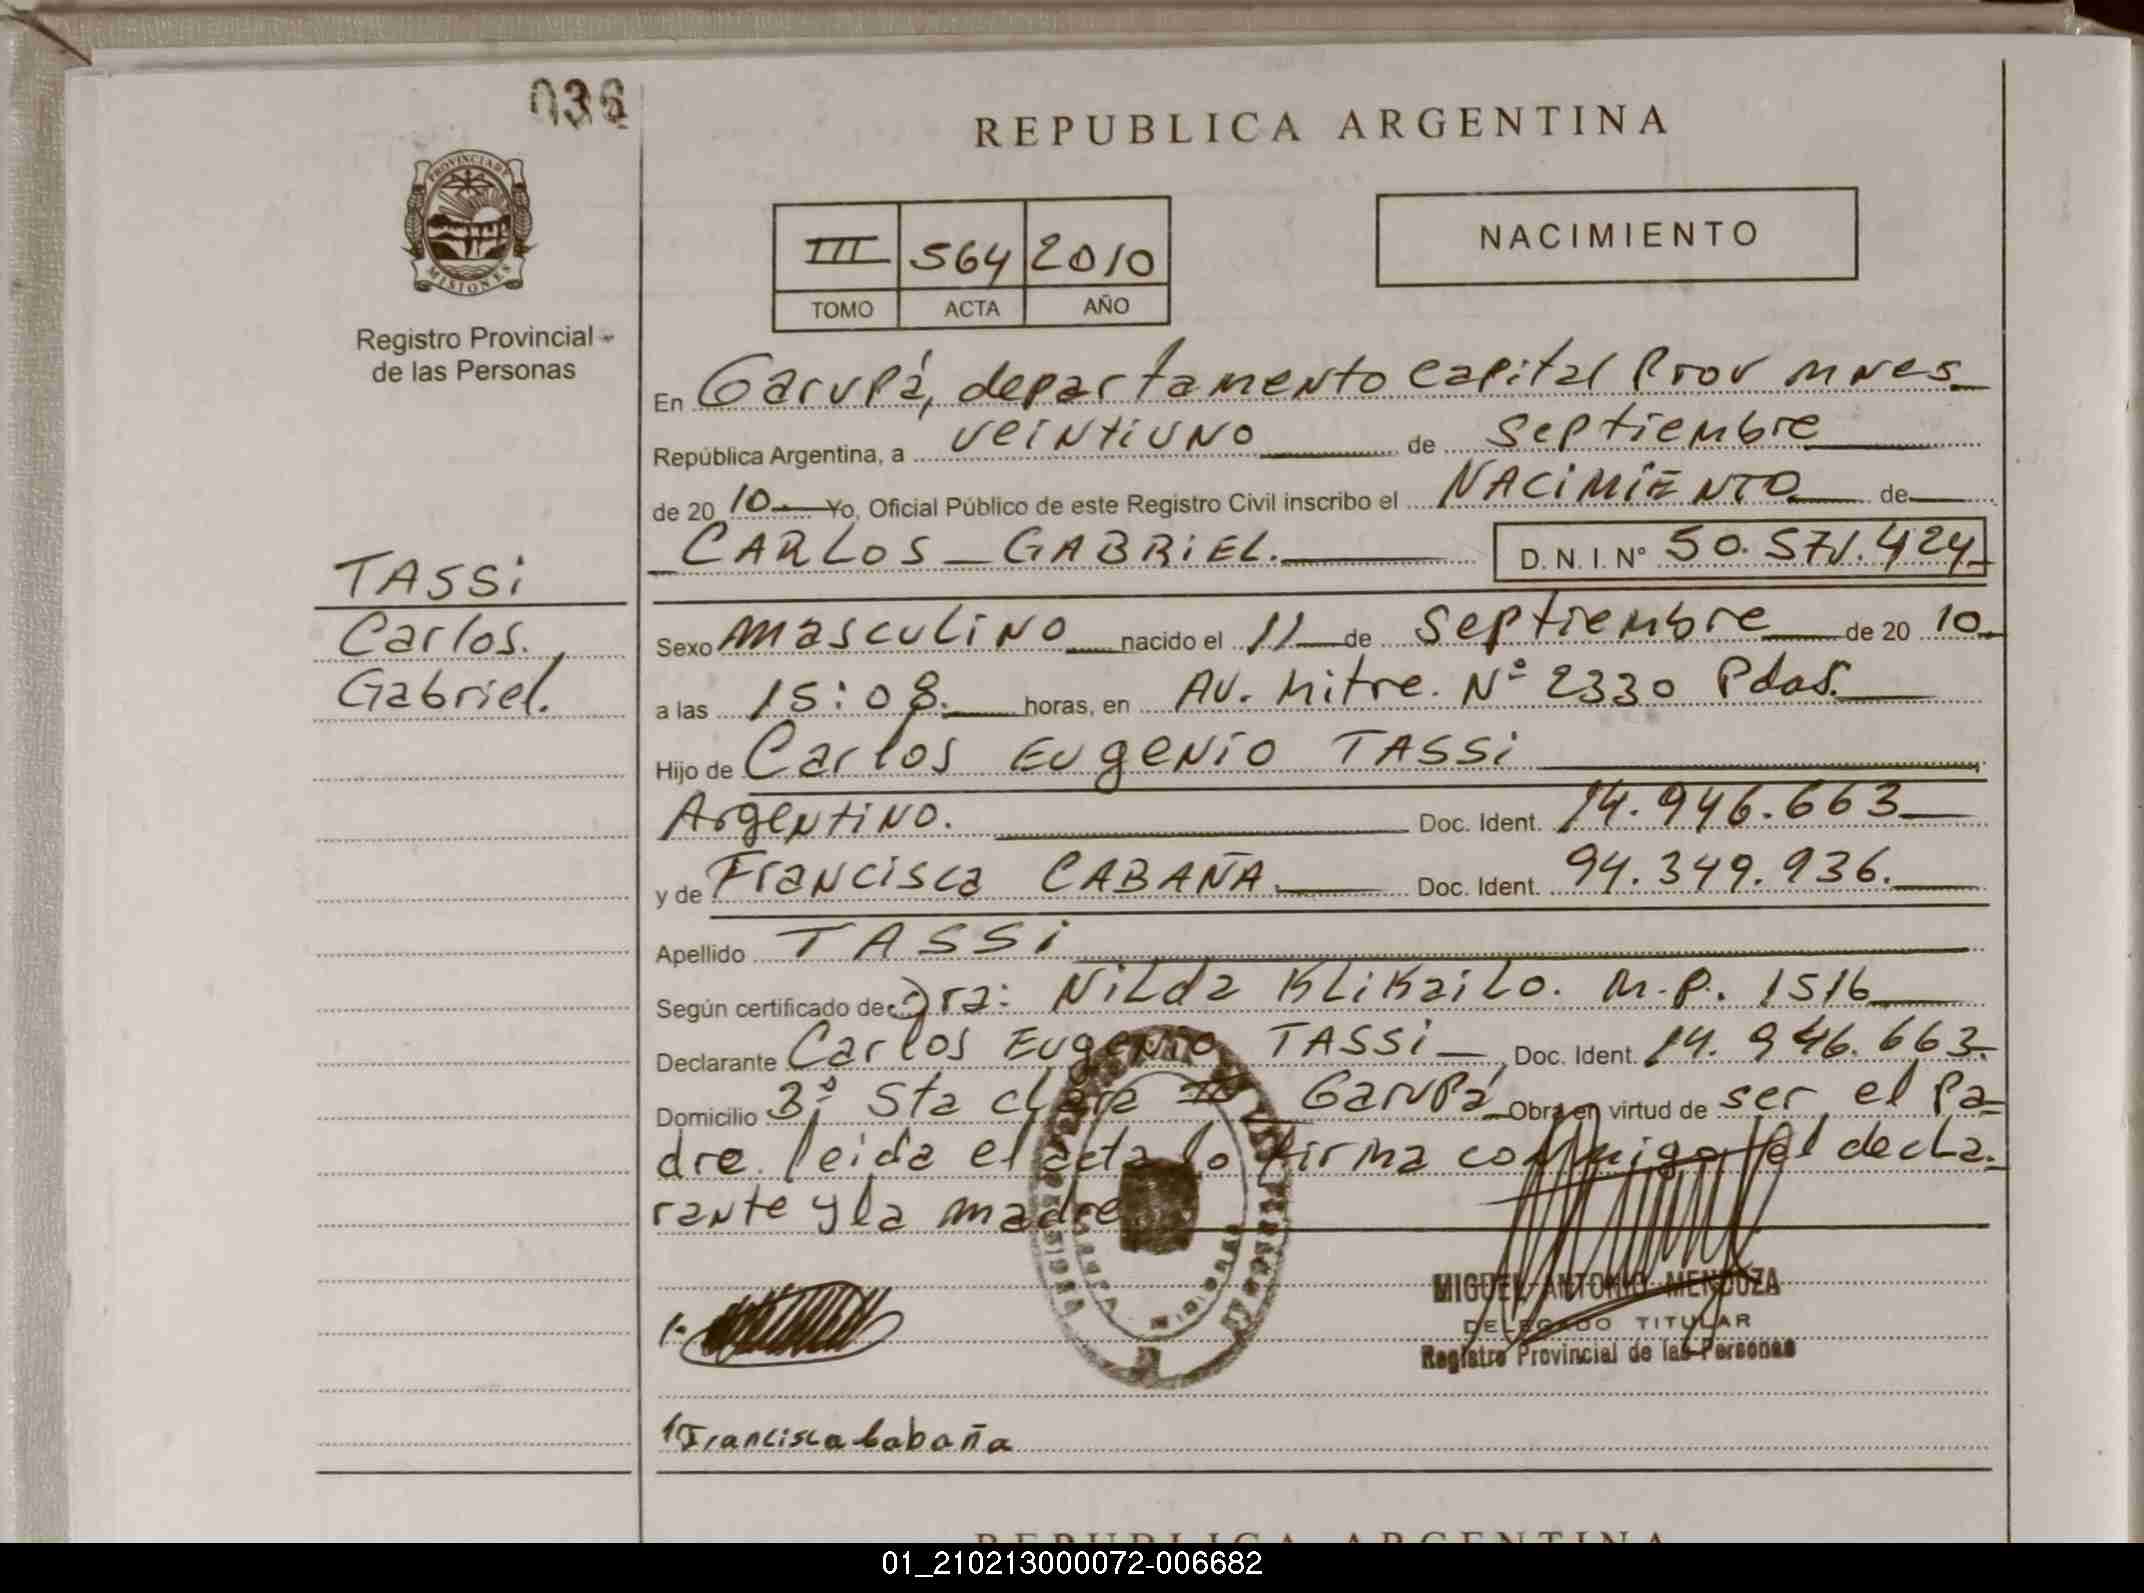 036
REPUBLICA ARGENTINA
PROVINCIA DE MISIONES
Registro Provincial
de las Personas
III 564 2010
TOMO ACTA AÑO
NACIMIENTO
En Garupá, departamento Capital Prov Mnes
República Argentina, a veintiuno de Septiembre
de 20 10 Yo, Oficial Público de este Registro Civil inscribo el NACIMIENTO de
CARLOS GABRIEL. D. N. I. N° 50.571.424
TASSi
Carlos.
Gabriel.
Sexo masculino nacido el 11 de Septiembre de 20 10
a las 15:08. horas, en Av. Mitre. N° 2330 Pdas.
Hijo de Carlos Eugenio TASSi
Argentino. Doc. Ident. 14.946.663
y de Francisca CABAÑA Doc. Ident. 94.349.936.
Apellido TASSi
Según certificado de Dra: Nilda Klikailo. M.P. 1516
Declarante Carlos Eugenio TASSi, Doc. Ident. 14.946.663.
Domicilio Sta Clara Garupá Obra en virtud de ser el Pa-
dre. leida el acta lo firma conmigo el decla-
rante y la madre
MIGUEL ANTONIO MENDOZA
DELEGADO TITULAR
Registro Provincial de las Personas
Francisca Cabaña
REPUBLICA ARGENTINA
01_210213000072-006682